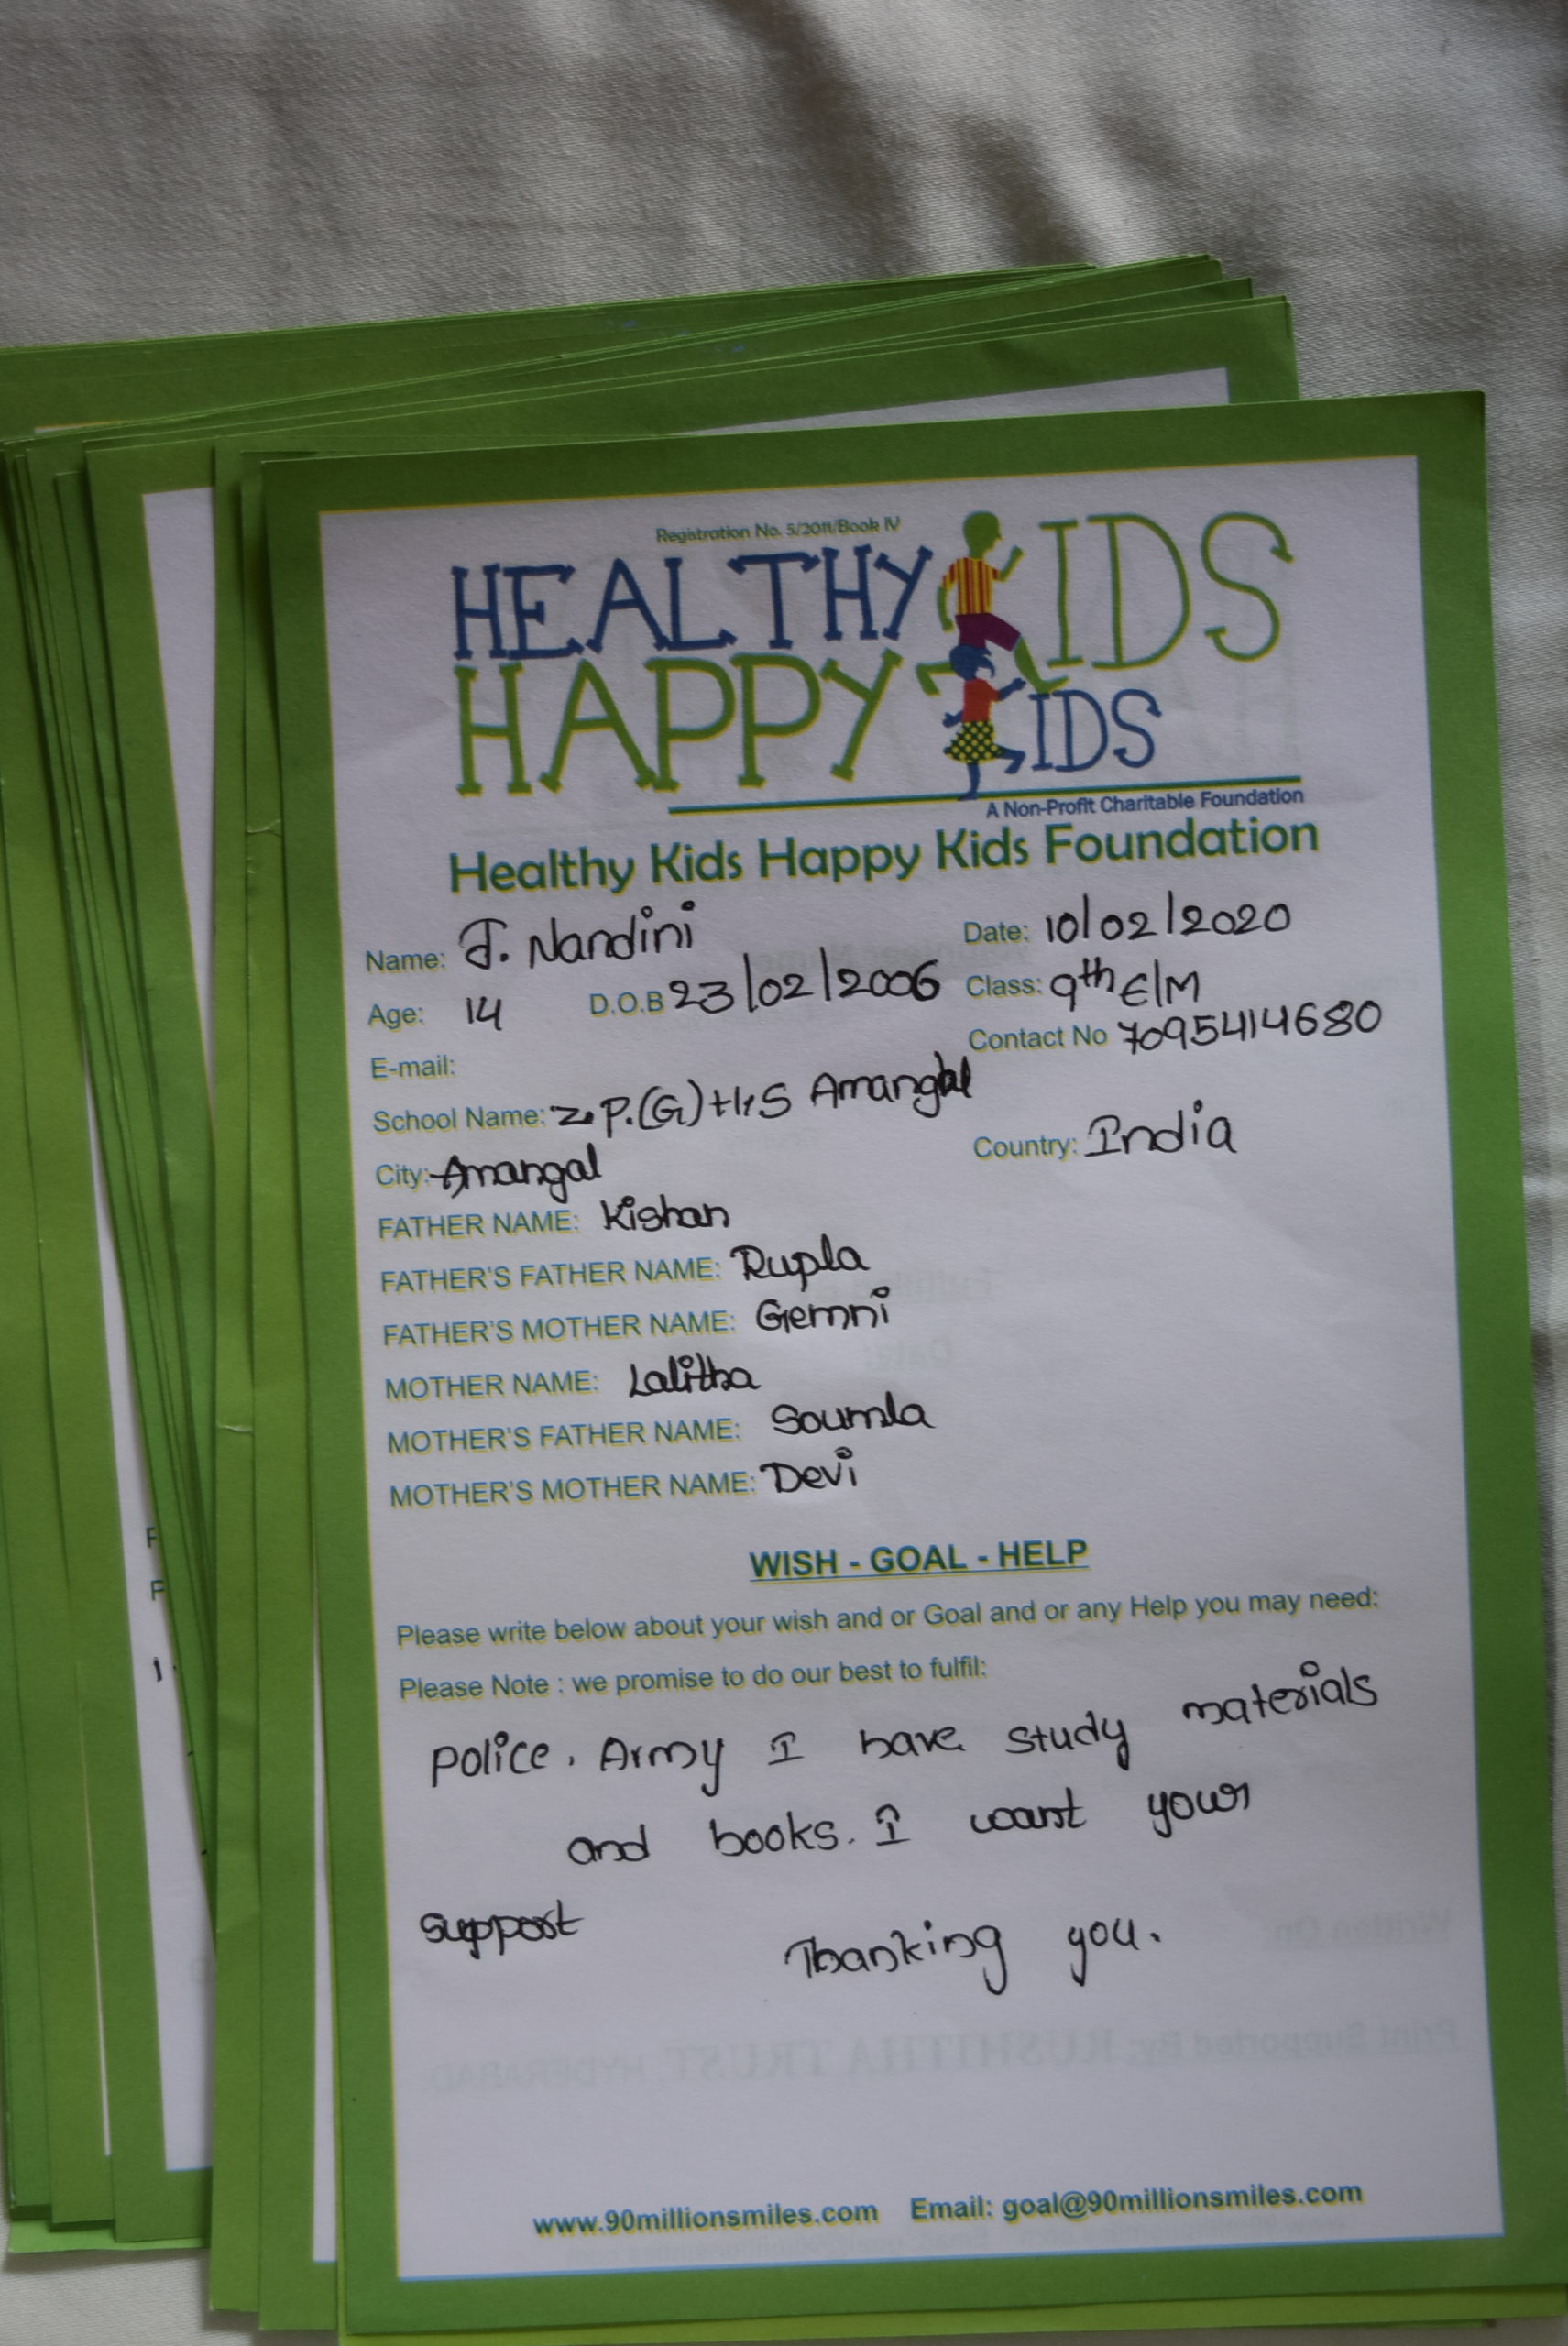 Registration No. 5/2011/Book IV
HEALTHY KIDS
HAPPY KIDS
A Non-Profit Charitable Foundation
Healthy Kids Happy Kids Foundation
Name: J. Nandini Date: 10/02/2020
Age: 14 D.O.B 23/02/2006 Class: 9th E/M
E-mail: Contact No 7095414680
School Name: Z.P.(G) H.S Amangal
City: Amangal Country: India
FATHER NAME: Kishan
FATHER'S FATHER NAME: Rupla
FATHER'S MOTHER NAME: Gemni
MOTHER NAME: Lalitha
MOTHER'S FATHER NAME: Soumla
MOTHER'S MOTHER NAME: Devi
WISH - GOAL - HELP
Please write below about your wish and or Goal and or any Help you may need:
Please Note : we promise to do our best to fulfil:
Police. Army I have study materials
and books. I want your
support
Thanking you.
www.90millionsmiles.com Email: goal@90millionsmiles.com